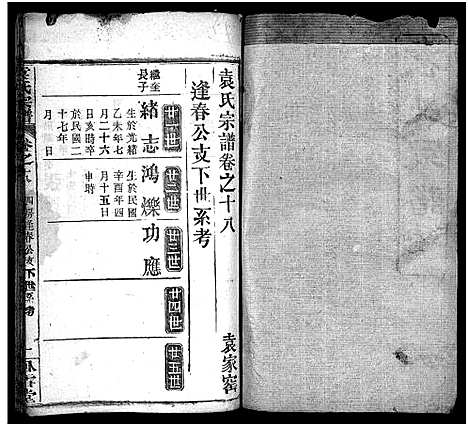 袁氏宗譜卷之十八
袁家窰
逢春公支下世系考
廿一世
廿二世
廿三世
廿四世
廿五世
繼奎
長子
緒志
生於光緒
乙未年七
月二十六
日亥時卒
於民國二
十七年
月 日
鴻爍
生於民國
辛酉年四
月十五日
申時
功應
四房逢春公支下世系考